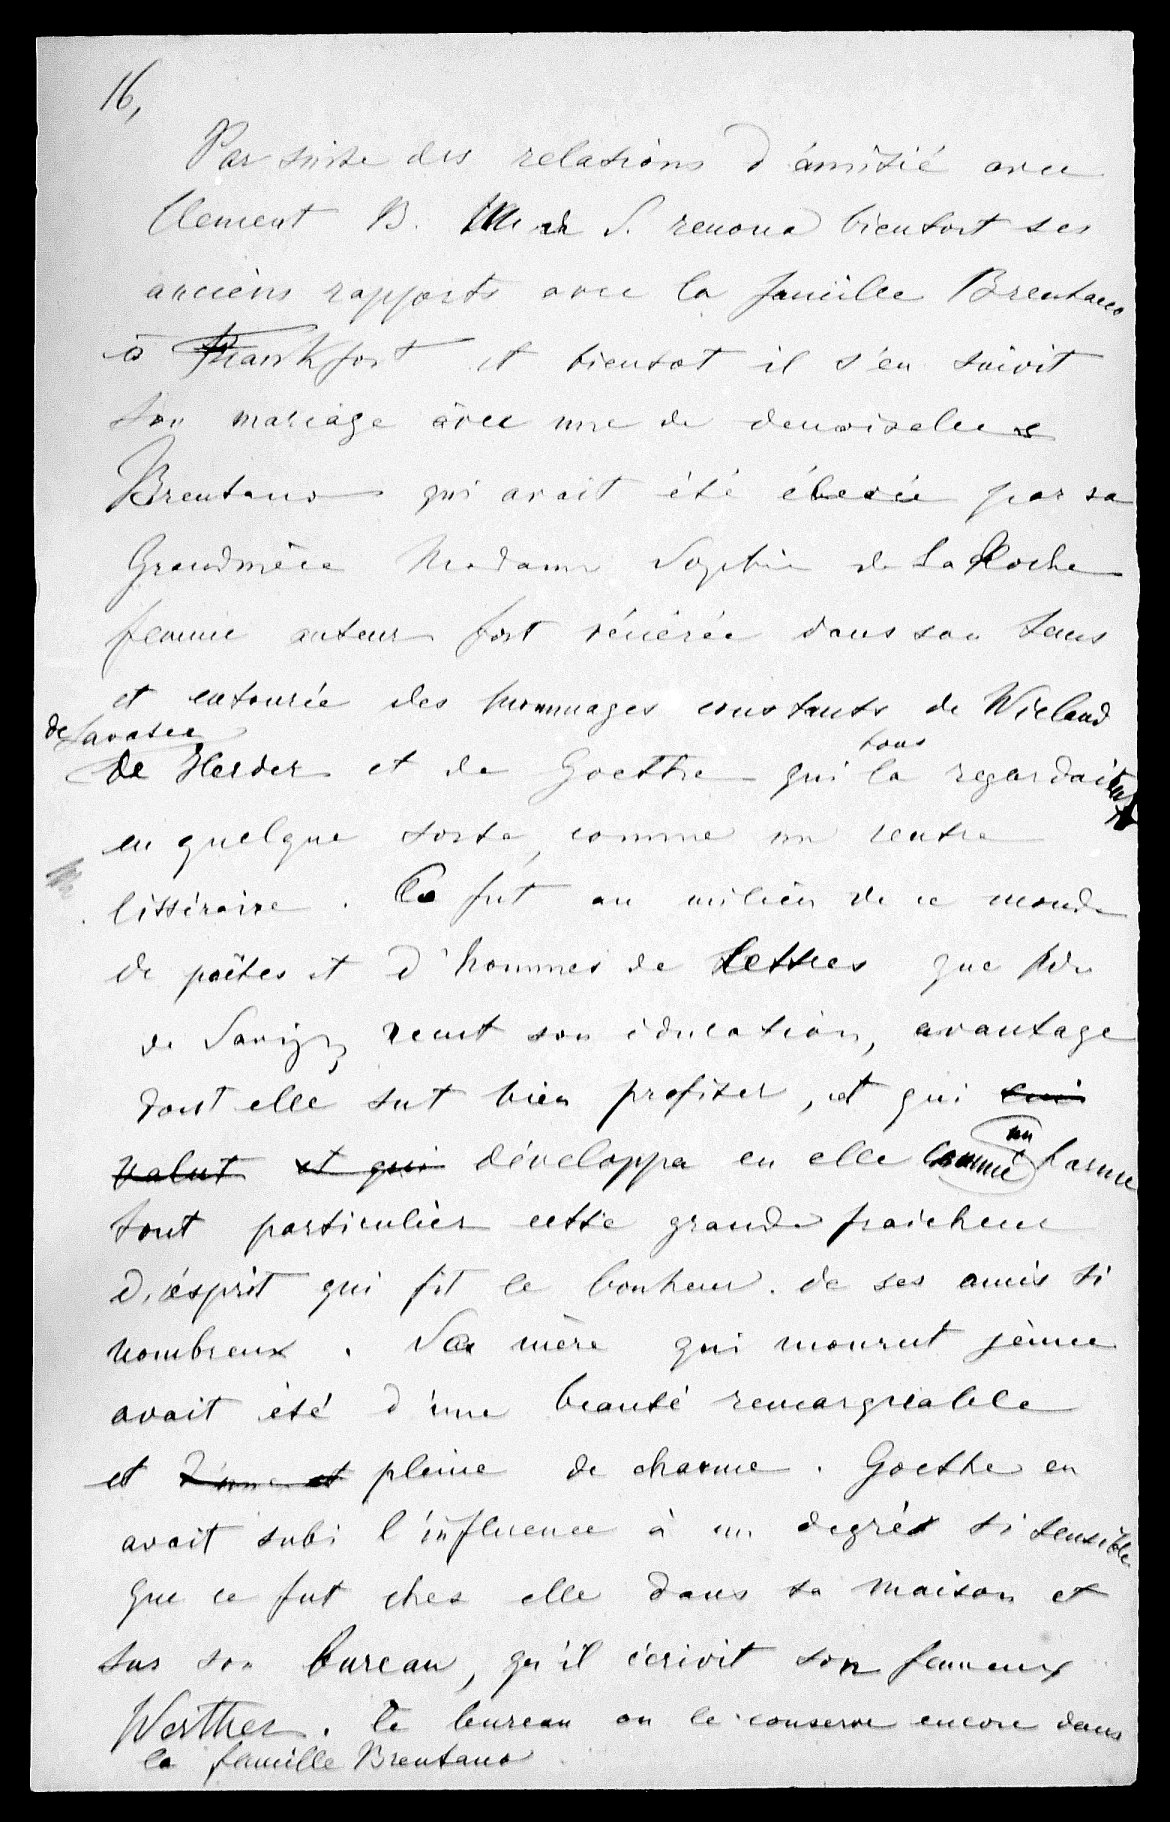 16,
Par suite des relations d'amitié avec
Clement B. Mr de S. renoua bientost ses
anciens rapports avec la famille Brentano
à Frankfort et bientot il s'en suivit
son mariage avec une de demoiselles
Brentano qui avait été élevée par sa
Grandmère Madame Sophie de La Roche
femme auteur fort vénérée dans son tems
et entourée des hommages constants de Wieland
de Lavater
de Herder et de Goethe qui tous la regardaient
en quelque sorte, comme un centre
littéraire. Ce fut au milieu de ce monde
de poëtes et d'hommes de lettres que Mde
de Savigny recut son éducation, avantage
dont elle sut bien profiter, et qui lui
valut et qui développa en elle comme un charme
tout particulier cette grande fraicheur
d'esprit qui fit le bonheur de ses amis si
nombreux. Sa mère qui mourut jeune
avait été d'une beauté remarquable
et d'une et pleine de charme. Goethe en
avait subi l'influence à un degrés si sensible
que ce fut chez elle dans sa maison et
sur son bureau, qu'il écrivit son fameux
Werther. Ce bureau on le conserve encore dans
la famille Brentano